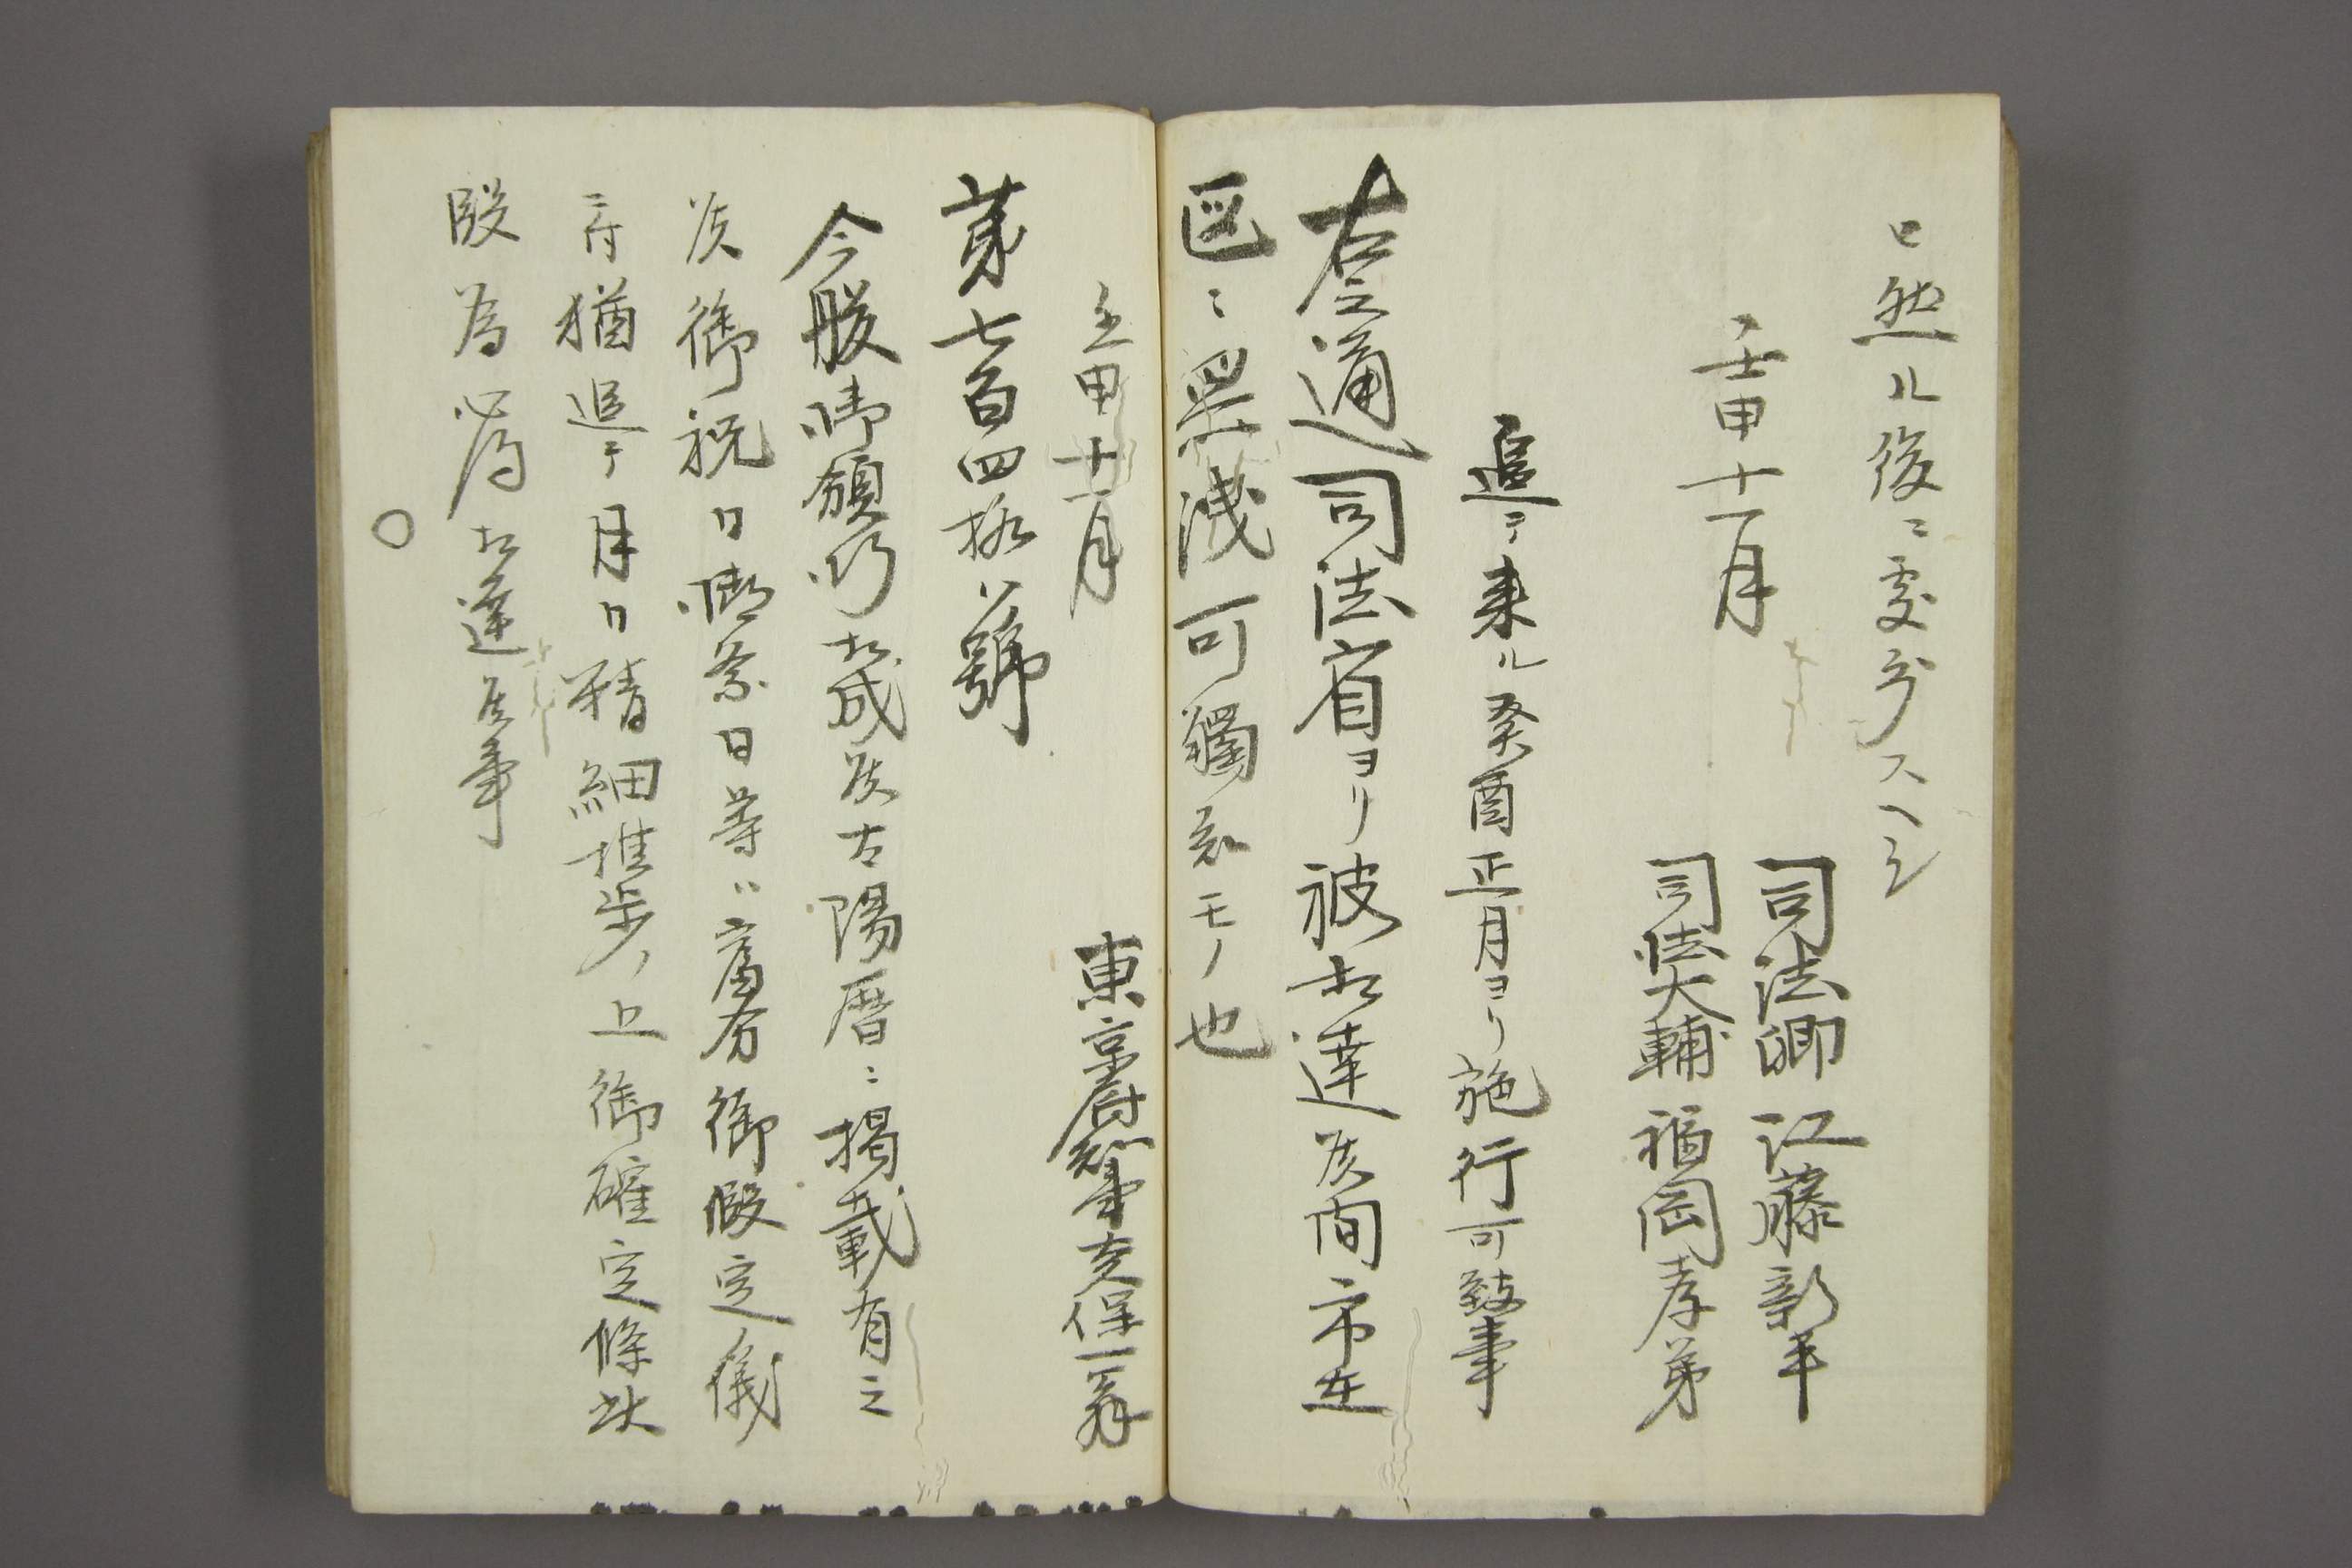 ヒ然ル後ニ處分スヘシ
壬申十一月
司法卿江藤新平
司法大輔福岡孝弟
追テ来ル癸酉正月ヨリ施行可致事
右之通司法省ヨリ被相達候間市在
区ニ無洩可觸示モノ也
壬申十一月
東京府知事大久保一翁
第七百四拾八號
今般御頒行相成候太陽暦ニ掲載有之
候御祝日御祭日等ハ當分御假定ノ儀
ニ付猶追テ月日精細推歩ノ上御確定條此
段為心得相達候事
○